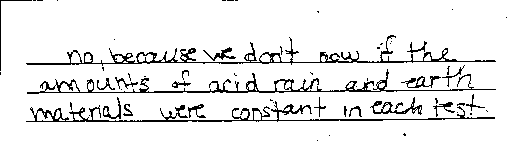 no, because we don't now if the
amounts of acid rain and earth
materials were constant in each test.